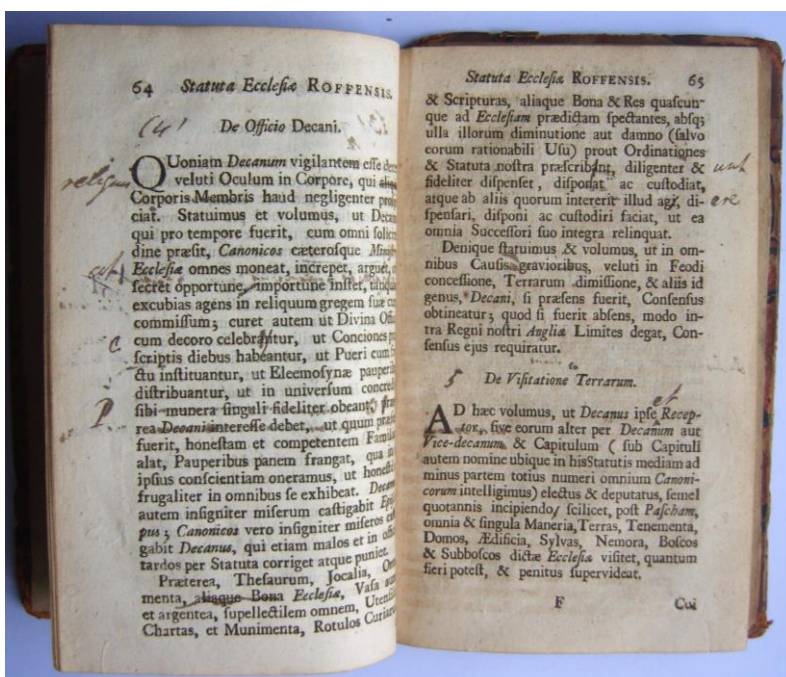 64 Statuta Ecclesiæ ROFFENSIS.
(4'
De Officio Decani.
QUoniam Decanum vigilantem esse
veluti Oculum in Corpore, qui
religuis
Corporis Membris haud negligenter
ciat. Statuimus et volumus, ut
qui pro tempore fuerit, cum omni
dine præsit, Canonicos cæterosque
Ecclesiæ omnes moneat, increpet, arguet,
secret opportune, importune instet,
excubias agens in reliquum gregem suæ
commissum; curet autem ut Divina
cum decoro celebrantur, ut Conciones
C
scriptis diebus habeantur, ut Pueri cum
ctu instituantur, ut Eleemosynæ
distribuantur, ut in universum
sibi munera singuli fideliter obeant;
P
rea Decani interesse debet, ut quum
fuerit, honestam et competentem
alat, Pauperibus panem frangat, qua in
ipsius conscientiam oneramus, ut
frugaliter in omnibus se exhibeat.
autem insigniter miserum castigabit
pus; Canonicos vero insigniter miseros
gabit Decanus, qui etiam malos et in
tardos per Statuta corriget atque puniet.
Præterea, Thesaurum, Jocalia,
menta, aliaque Bona Ecclesiæ, Vasa
et argentea, supellectilem omnem,
Chartas, et Munimenta, Rotulos
Statuta Ecclesiæ ROFFENSIS. 65
& Scripturas, aliaque Bona & Res quascun-
que ad Ecclesiam prædictam spectantes, absq;
ulla illorum diminutione aut damno (salvo
eorum rationabili Usu) prout Ordinationes
& Statuta nostra præscribant, diligenter & unt
fideliter dispenset, disponat ac custodiat,
atque ab aliis quorum intererit illud agi, di- ere
spensari, disponi ac custodiri faciat, ut ea
omnia Successori suo integra relinquat.
Denique statuimus & volumus, ut in om-
nibus Causis gravioribus, veluti in Feodi
concessione, Terrarum dimissione, & aliis id
genus, Decani, si præsens fuerit, Consensus
obtineatur; quod si fuerit absens, modo in-
tra Regni nostri Angliæ Limites degat, Con-
sensus ejus requiratur.
5 De Visitatione Terrarum.
et
AD hæc volumus, ut Decanus ipse Recep-
tor, sive eorum alter per Decanum aut
Vice-decanum & Capitulum ( sub Capituli
autem nomine ubique in his Statutis mediam ad
minus partem totius numeri omnium Canoni-
corum intelligimus) electus & deputatus, semel
quotannis incipiendo, scilicet, post Pascham,
omnia & singula Maneria, Terras, Tenementa,
Domos, Ædificia, Sylvas, Nemora, Boscos
& Subboscos dictæ Ecclesiæ visitet, quantum
fieri potest, & penitus supervideat.
F Cui